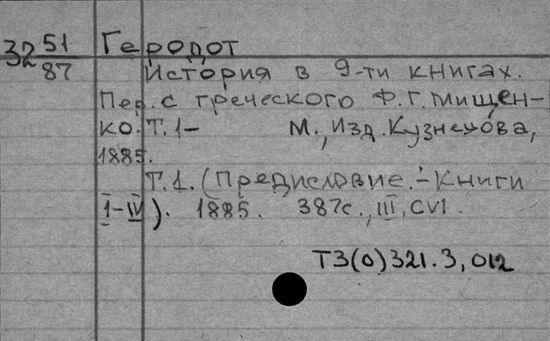 32 51/87 Геродот
История в 9-ти книгах.
Пер. с греческого Ф.Г. Мищен-
ко. Т. 1- М., Изд. Кузнецова,
1885.
Т. 1. (Предисловие. - Книги
I-IV). 1885. 387с., III, CVI.
Т3(0)321.3,012